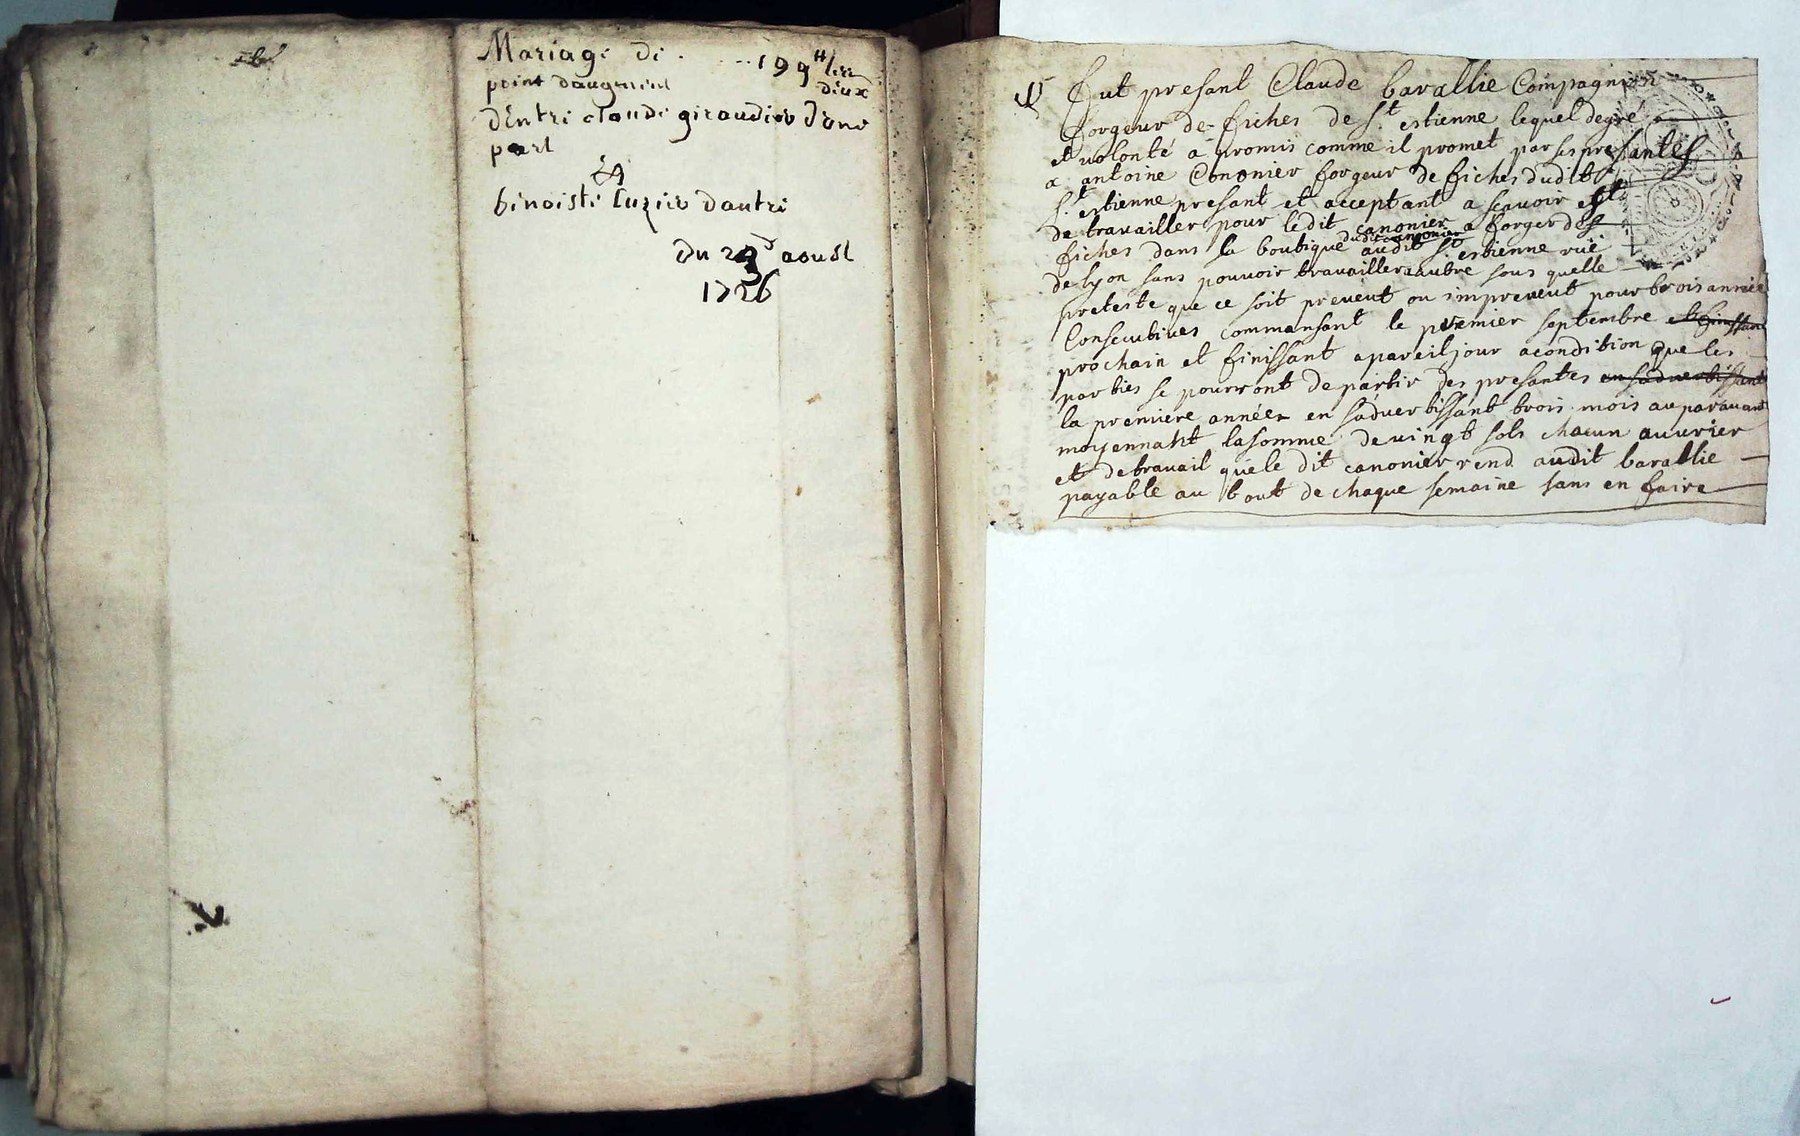 Mariage de . . . . 199 ℔
point daugment dieux
D'Entre claude giraudier d'une
part
Et
benoiste luzier dautre
Du 23 aoust
1726
fut presant Claude barallie Compagnion
forgeur de fiches de St estienne lequel de gré
et volonté a promis comme il promet par ses presantes
a antoine Canonier forgeur de fiches dudit
St estienne presant et acceptant a scavoir est
de travailler pour ledit canonier a forger des
fiches dans la boutique dudit canonier audit St estienne rue
de lyon sans pouvoir travailler a autre sous quelle
preteste que ce soit preveut ou impreveut pour trois années
Consecutives commansant le premier septembre et finissant
prochain et finissant a pareil jour a condition que les
parties se pourront departir des presantes en sadvertissant
la premiere année en sadvertissant trois mois auparavant
moyennant la somme de vingt sols chacun
et de travail que le dit canonier rend audit barallie
payable au bout de chaque semaine sans en faire